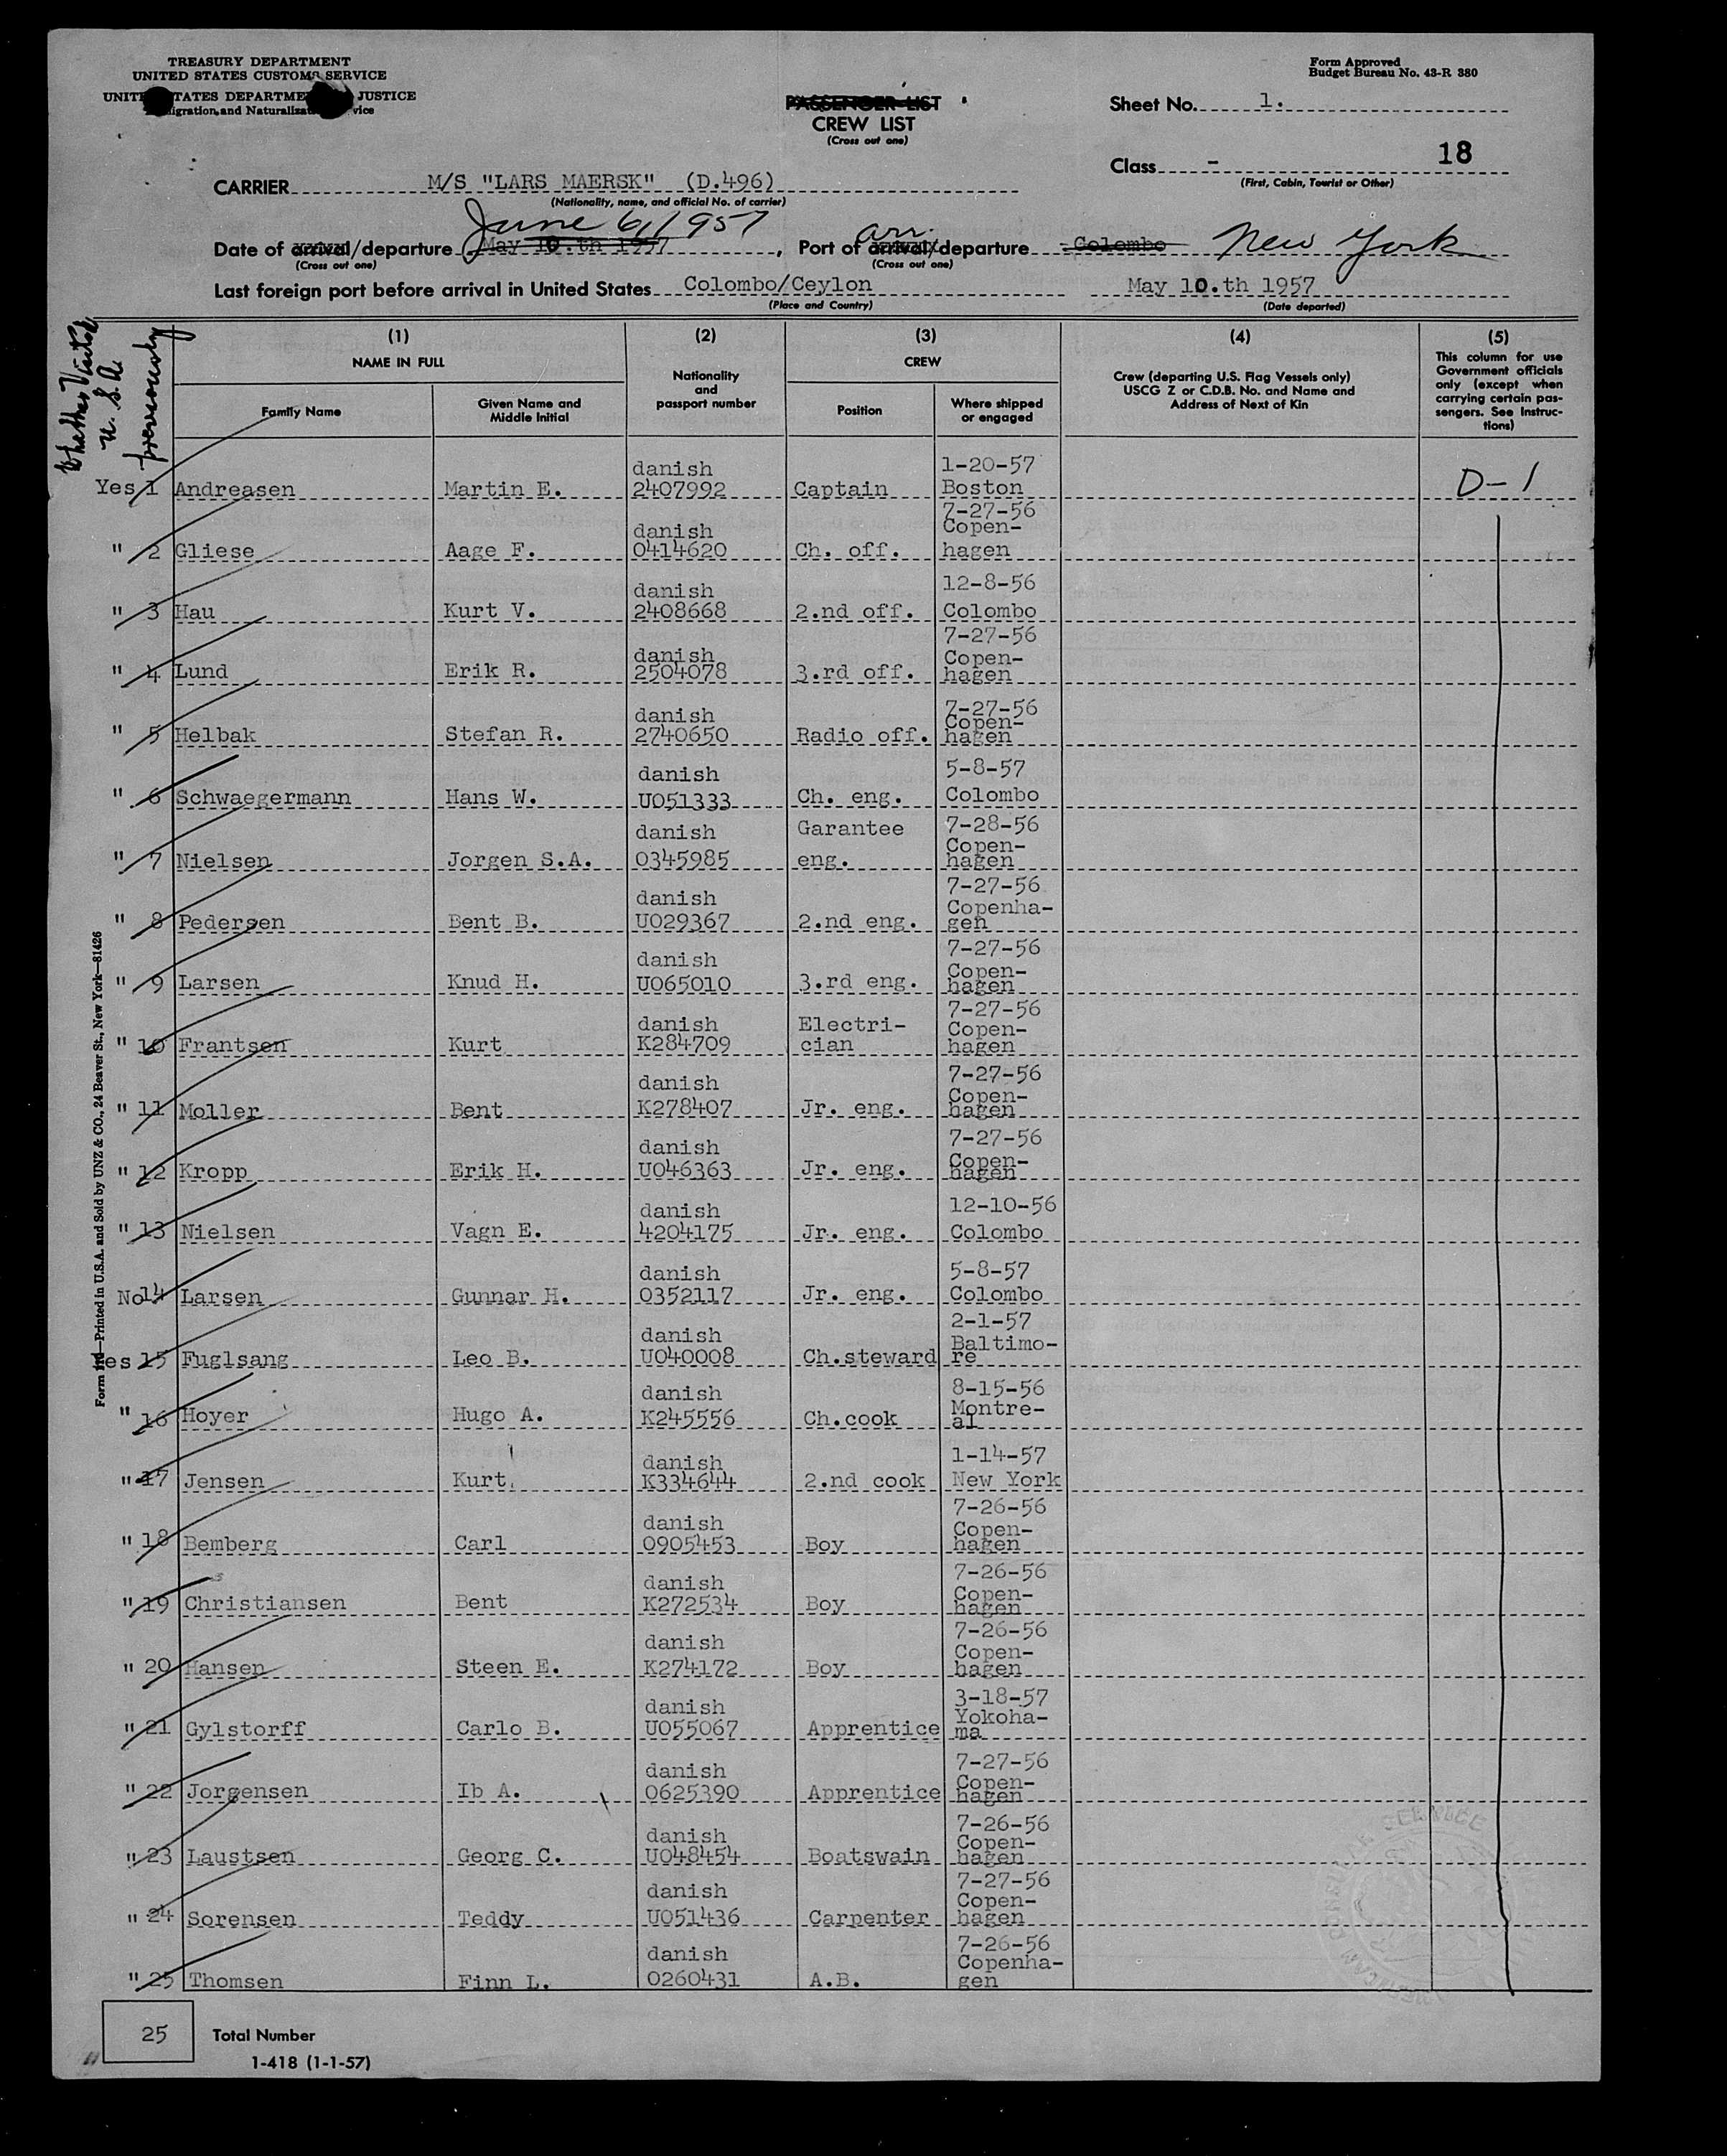 TREASURY DEPARTMENT
UNITED STATES CUSTOMS SERVICE
UNITED STATES DEPARTMENT JUSTICE
migration and Naturalization Service
Form Approved
Budget Bureau No. 43-R 380
PASSENGER LIST
CREW LIST
(Cross out one)
Sheet No. 1.
Class - 18
(First, Cabin, Tourist or Other)
CARRIER M/S "LARS MAERSK" (D.496)
(Nationality, name, and official No. of carrier)
June 6, 1957
arr.
Date of arrival/departure May 10.th 1957, Port of arrival/departure Colombo New York
(Cross out one) (Cross out one)
Last foreign port before arrival in United States Colombo/Ceylon May 10.th 1957
(Place and Country) (Date departed)
Whether Visited
U.S.A.
previously
(1) (2) (3) (4) (5)
NAME IN FULL
Family Name
Given Name and
Middle Initial
Nationality
and
passport number
CREW
Position
Where shipped
or engaged
Crew (departing U.S. Flag Vessels only)
USCG Z or C.D.B. No. and Name and
Address of Next of Kin
This column for use
Government officials
only (except when
carrying certain pas-
sengers. See Instruc-
tions)
danish 1-20-57
Yes 1 Andreasen Martin E. 2407992 Captain Boston D-1
7-27-56
danish Copen-
" 2 Gliese Aage F. 0414620 Ch. off. hagen
danish 12-8-56
" 3 Hau Kurt V. 2408668 2.nd off. Colombo
7-27-56
danish Copen-
" 4 Lund Erik R. 2504078 3.rd off. hagen
7-27-56
danish Copen-
" 5 Helbak Stefan R. 2740650 Radio off. hagen
danish 5-8-57
" 6 Schwaegermann Hans W. U051333 Ch. eng. Colombo
danish Garantee 7-28-56
Copen-
" 7 Nielsen Jorgen S.A. 0345985 eng. hagen
7-27-56
danish Copenha-
" 8 Pedersen Bent B. U029367 2.nd eng. gen
7-27-56
danish Copen-
" 9 Larsen Knud H. U065010 3.rd eng. hagen
7-27-56
danish Electri- Copen-
" 10 Frantsen Kurt K284709 cian hagen
7-27-56
danish Copen-
" 11 Moller Bent K278407 Jr. eng. hagen
7-27-56
danish Copen-
" 12 Kropp Erik H. U046363 Jr. eng. hagen
danish 12-10-56
" 13 Nielsen Vagn E. 4204175 Jr. eng. Colombo
danish 5-8-57
No 14 Larsen Gunnar H. 0352117 Jr. eng. Colombo
2-1-57
danish Baltimo-
Yes 15 Fuglsang Leo B. U040008 Ch.steward re
8-15-56
danish Montre-
" 16 Hoyer Hugo A. K245556 Ch.cook al
danish 1-14-57
" 17 Jensen Kurt K334644 2.nd cook New York
7-26-56
danish Copen-
" 18 Bemberg Carl 0905453 Boy hagen
7-26-56
danish Copen-
" 19 Christiansen Bent K272534 Boy hagen
7-26-56
danish Copen-
" 20 Hansen Steen E. K274172 Boy hagen
3-18-57
danish Yokoha-
" 21 Gylstorff Carlo B. U055067 Apprentice ma
7-27-56
danish Copen-
" 22 Jorgensen Ib A. 0625390 Apprentice hagen
7-26-56
danish Copen-
" 23 Laustsen Georg C. U048454 Boatswain hagen
7-27-56
danish Copen-
" 24 Sorensen Teddy U051436 Carpenter hagen
7-26-56
danish Copenha-
" 25 Thomsen Finn L. 0260431 A.B. gen
25 Total Number
1-418 (1-1-57)
Printed in U.S.A. and Sold by UNZ & CO., 24 Beaver St., New York—81426